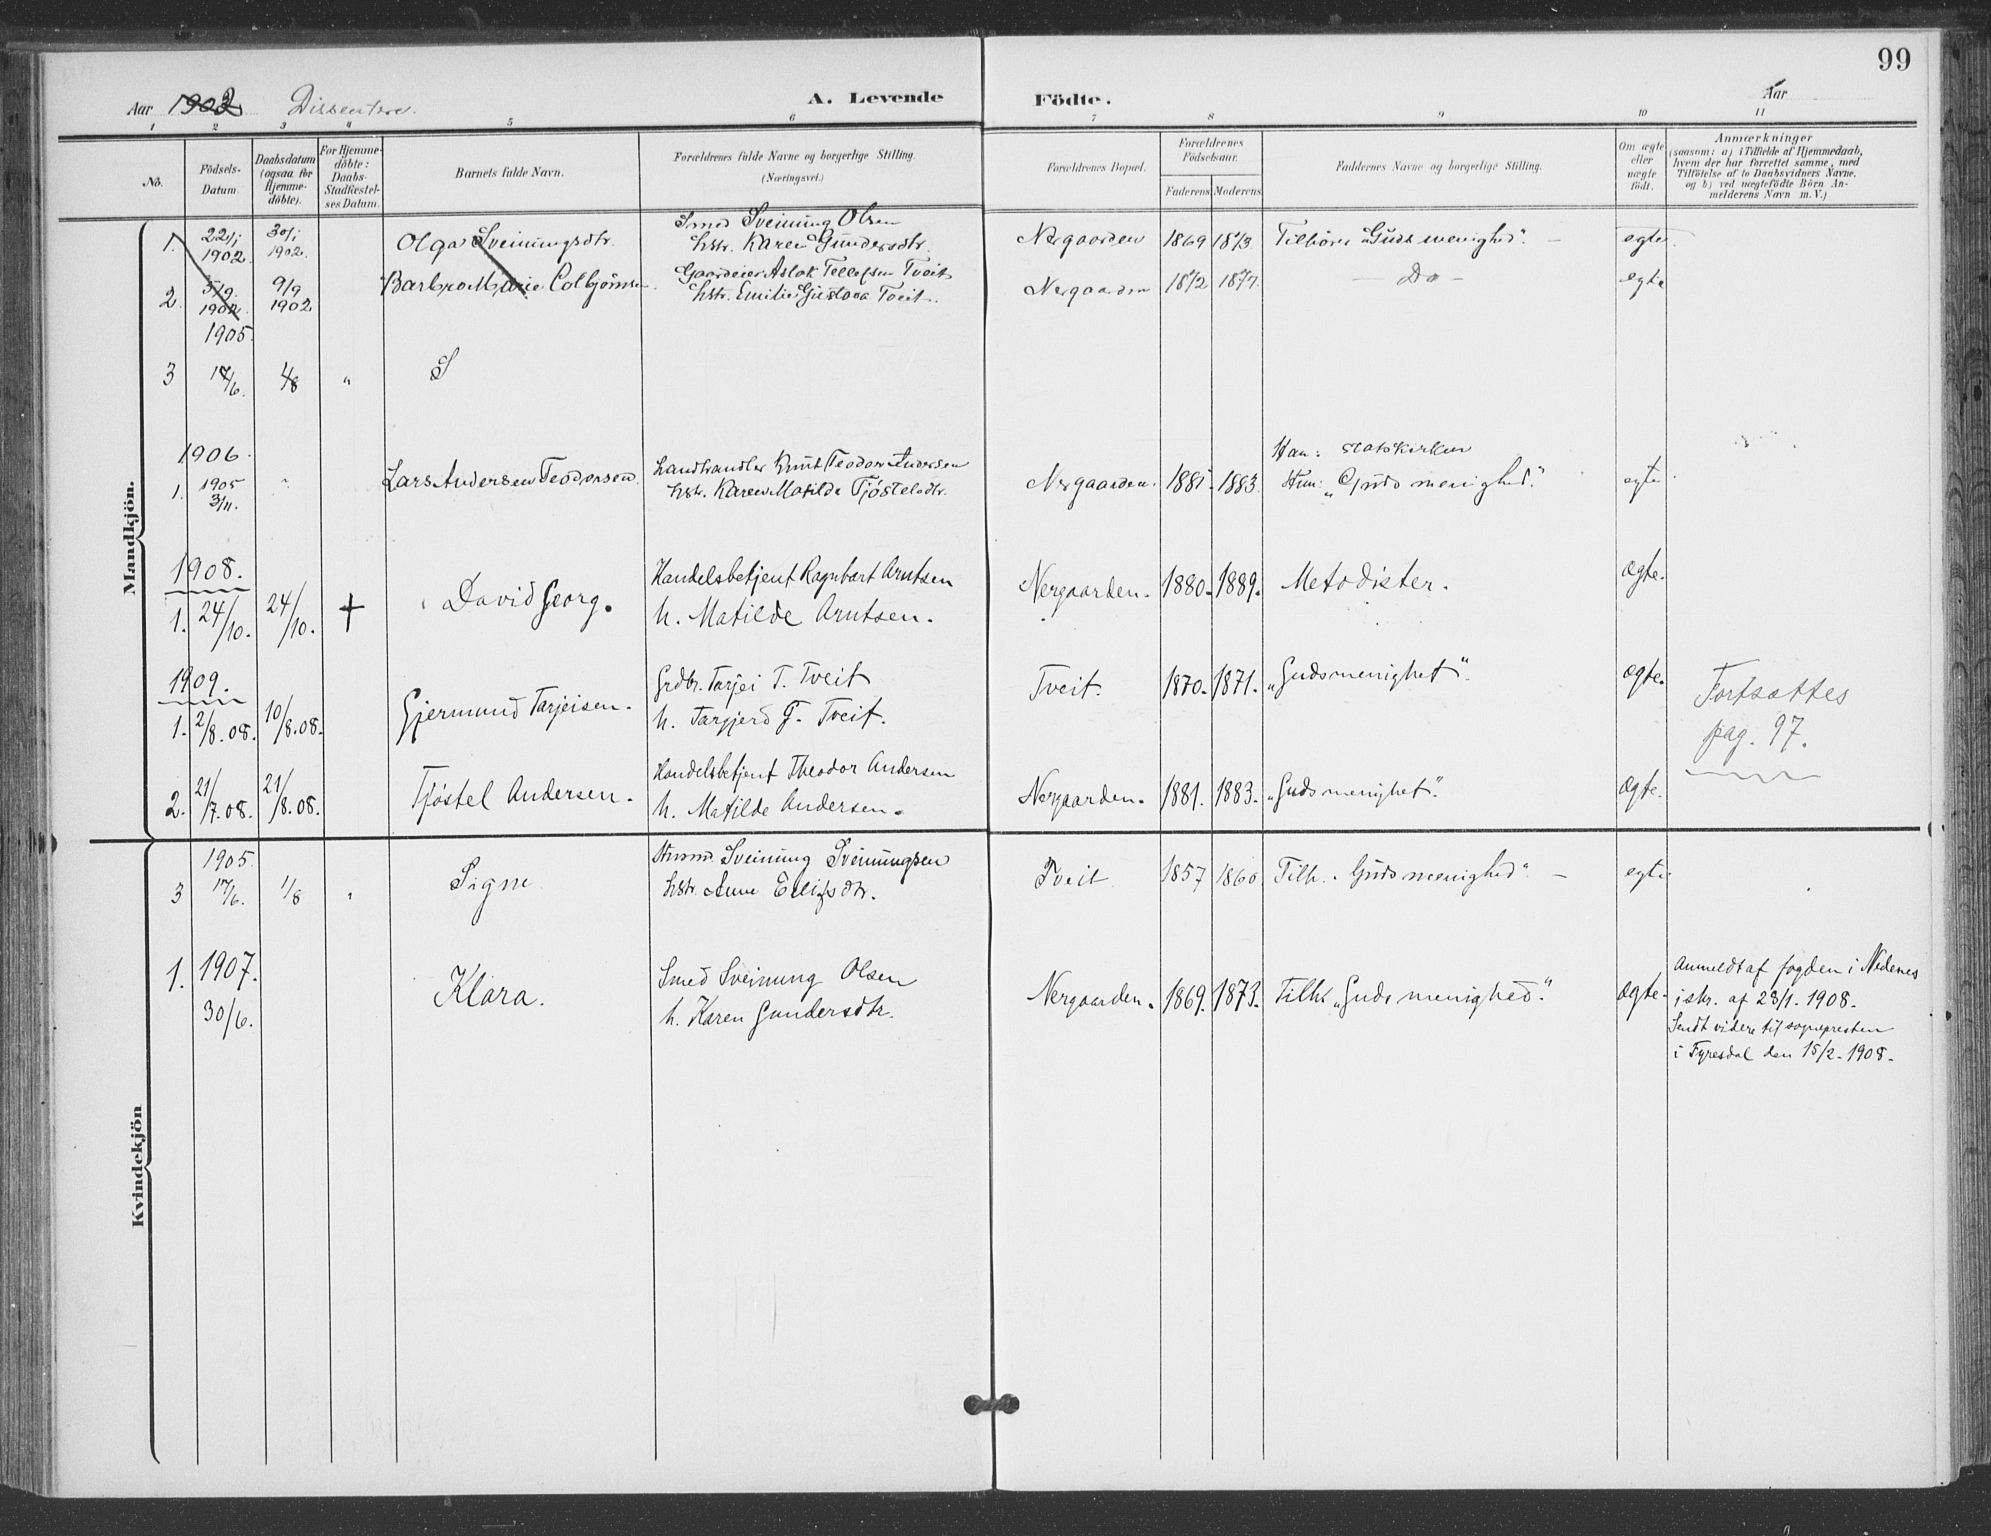 99
Aar 1902 Dissentere.
A. Levende Födte.
Aar
1 2 3 4 5 6 7 8 9 10 11
No.
Födsels-
Datum.
Daabsdatum
(ogsaa for
Hjemme-
döbte).
For Hjemme-
döbte:
Daabs-
Stadfæstel-
ses Datum.
Barnets fulde Navn.
Forældrenes fulde Navne og borgerlige Stilling.
(Næringsvei.)
Forældrenes Bopæl.
Forældrenes
Födselsaar.
Faderens Moderens
Faddernes Navne og borgerlige Stilling.
Om ægte
eller
uægte
födt.
Anmærkninger
(saasom: a) i Tilfælde af Hjemmedaab,
hvem der har forrettet samme, med
Tilföielse af to Daabsvidners Navne.
og b) ved uægtefödte Börn An-
melderens Navn m. V.)
Mandkjön.
1. 22/1 1902 30/1 1902. Olga Sveinungsdtr. Smed Sveinung Olsen
hstr. Karen Gundersdtr. Nergaarden 1869 1873 Tilhörer "Guds menighed". — egte
2. 5/9 1902 9/9 1902 Barbro Marie Colbjörnsen Gaardeier Aslak Tellefsen Tveit
hstr. Emilie Gustava Tveit. Nergaarden 1872 1877. — Do — egte
1905
3 17/6. 4/8 " S
1906
1. 1905 3/11. " Lars Andersen Teodorsen Landhandler Knut Teodor Andersen
hstr. Karen Matilde Tjöstelsdtr. Nergaarden. 1881. 1883. Han: statskirken
Hun: "Guds menighed." egte
1908.
1. 24/10. 24/10. + David Georg. Handelsbetjent Ragnvart Arntsen
h. Matilde Arntsen. Nergaarden. 1880. 1889. Metodister. Ægte.
1909.
1. 2/8.08. 10/8.08. Gjermund Tarjeisen. Grdbr. Tarjei T. Tveit
h. Targjerd G. Tveit. Tveit. 1870. 1871. "Gudsmenighet". Ægte.
Fortsættes
pag. 97.
2. 21/7.08. 21/8.08. Tjöstel Andersen. Handelsbetjent Theodor Andersen
h. Matilde Andersen. Nergaarden. 1881. 1883. "Gudsmenighet". Ægte.
Kvindekjön
1905.
3 17/6. 1/8 " Signe. Sveinung Sveinungsen
hstr. Anne Eilifsdtr. Tveit 1857 1860 Tilh. "Guds menighed". — egte
1. 1907. 30/6. Klara. Smed Sveinung Olsen
h. Karen Gundersdtr. Nergaarden. 1869. 1873. Tilh. "Guds menighed". Ægte.
Anmeldt af fogden i Nedenes
i skr. af 23/1. 1908.
Sendt videre til sognepresten
i Fyresdal den 15/2. 1908.